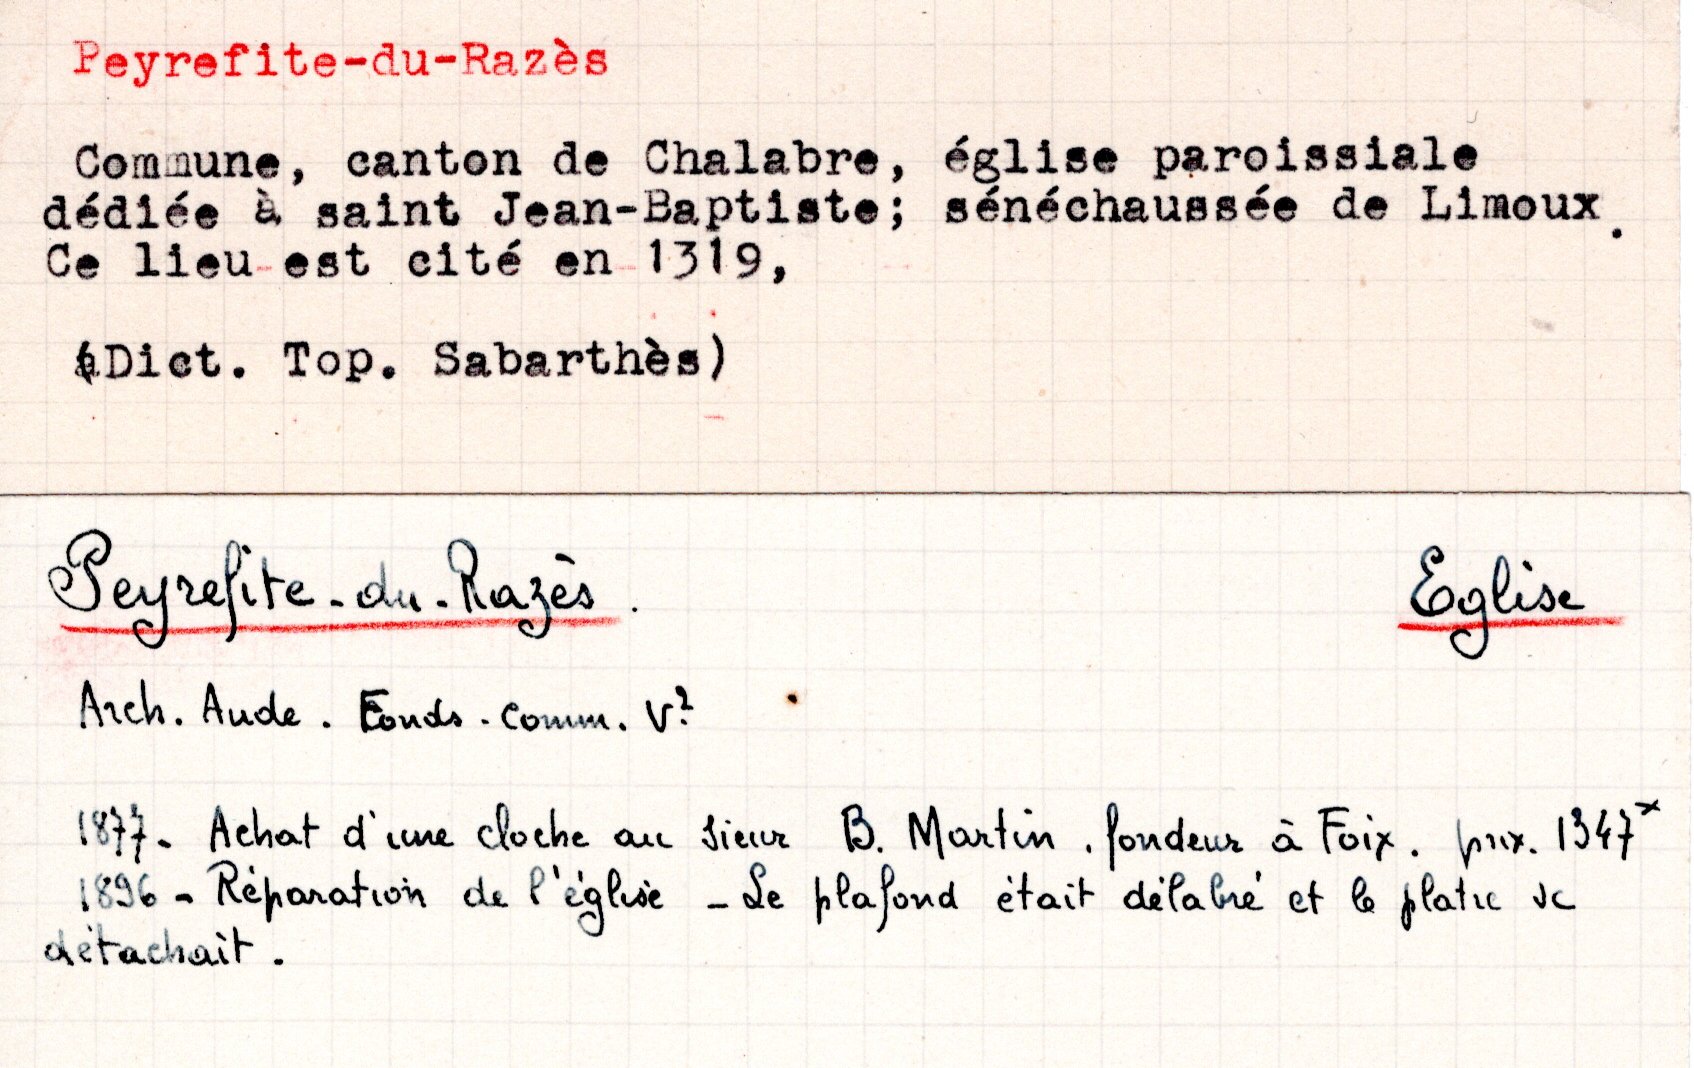 Peyrefite-du-Razès
Commune, canton de Chalabre, église paroissiale
dédiée à saint Jean-Baptiste; sénéchaussée de Limoux.
Ce lieu est cité en 1319,
(Dict. Top. Sabarthès)
Peyrefite-du-Razès. Eglise
Arch. Aude. Fonds. Comm. V²
1877- Achat d'une cloche au sieur B. Martin. fondeur à Foix. prix. 1347ˣ
1896- Réparation de l'église - Le plafond était délabré et le platre se
détachait.